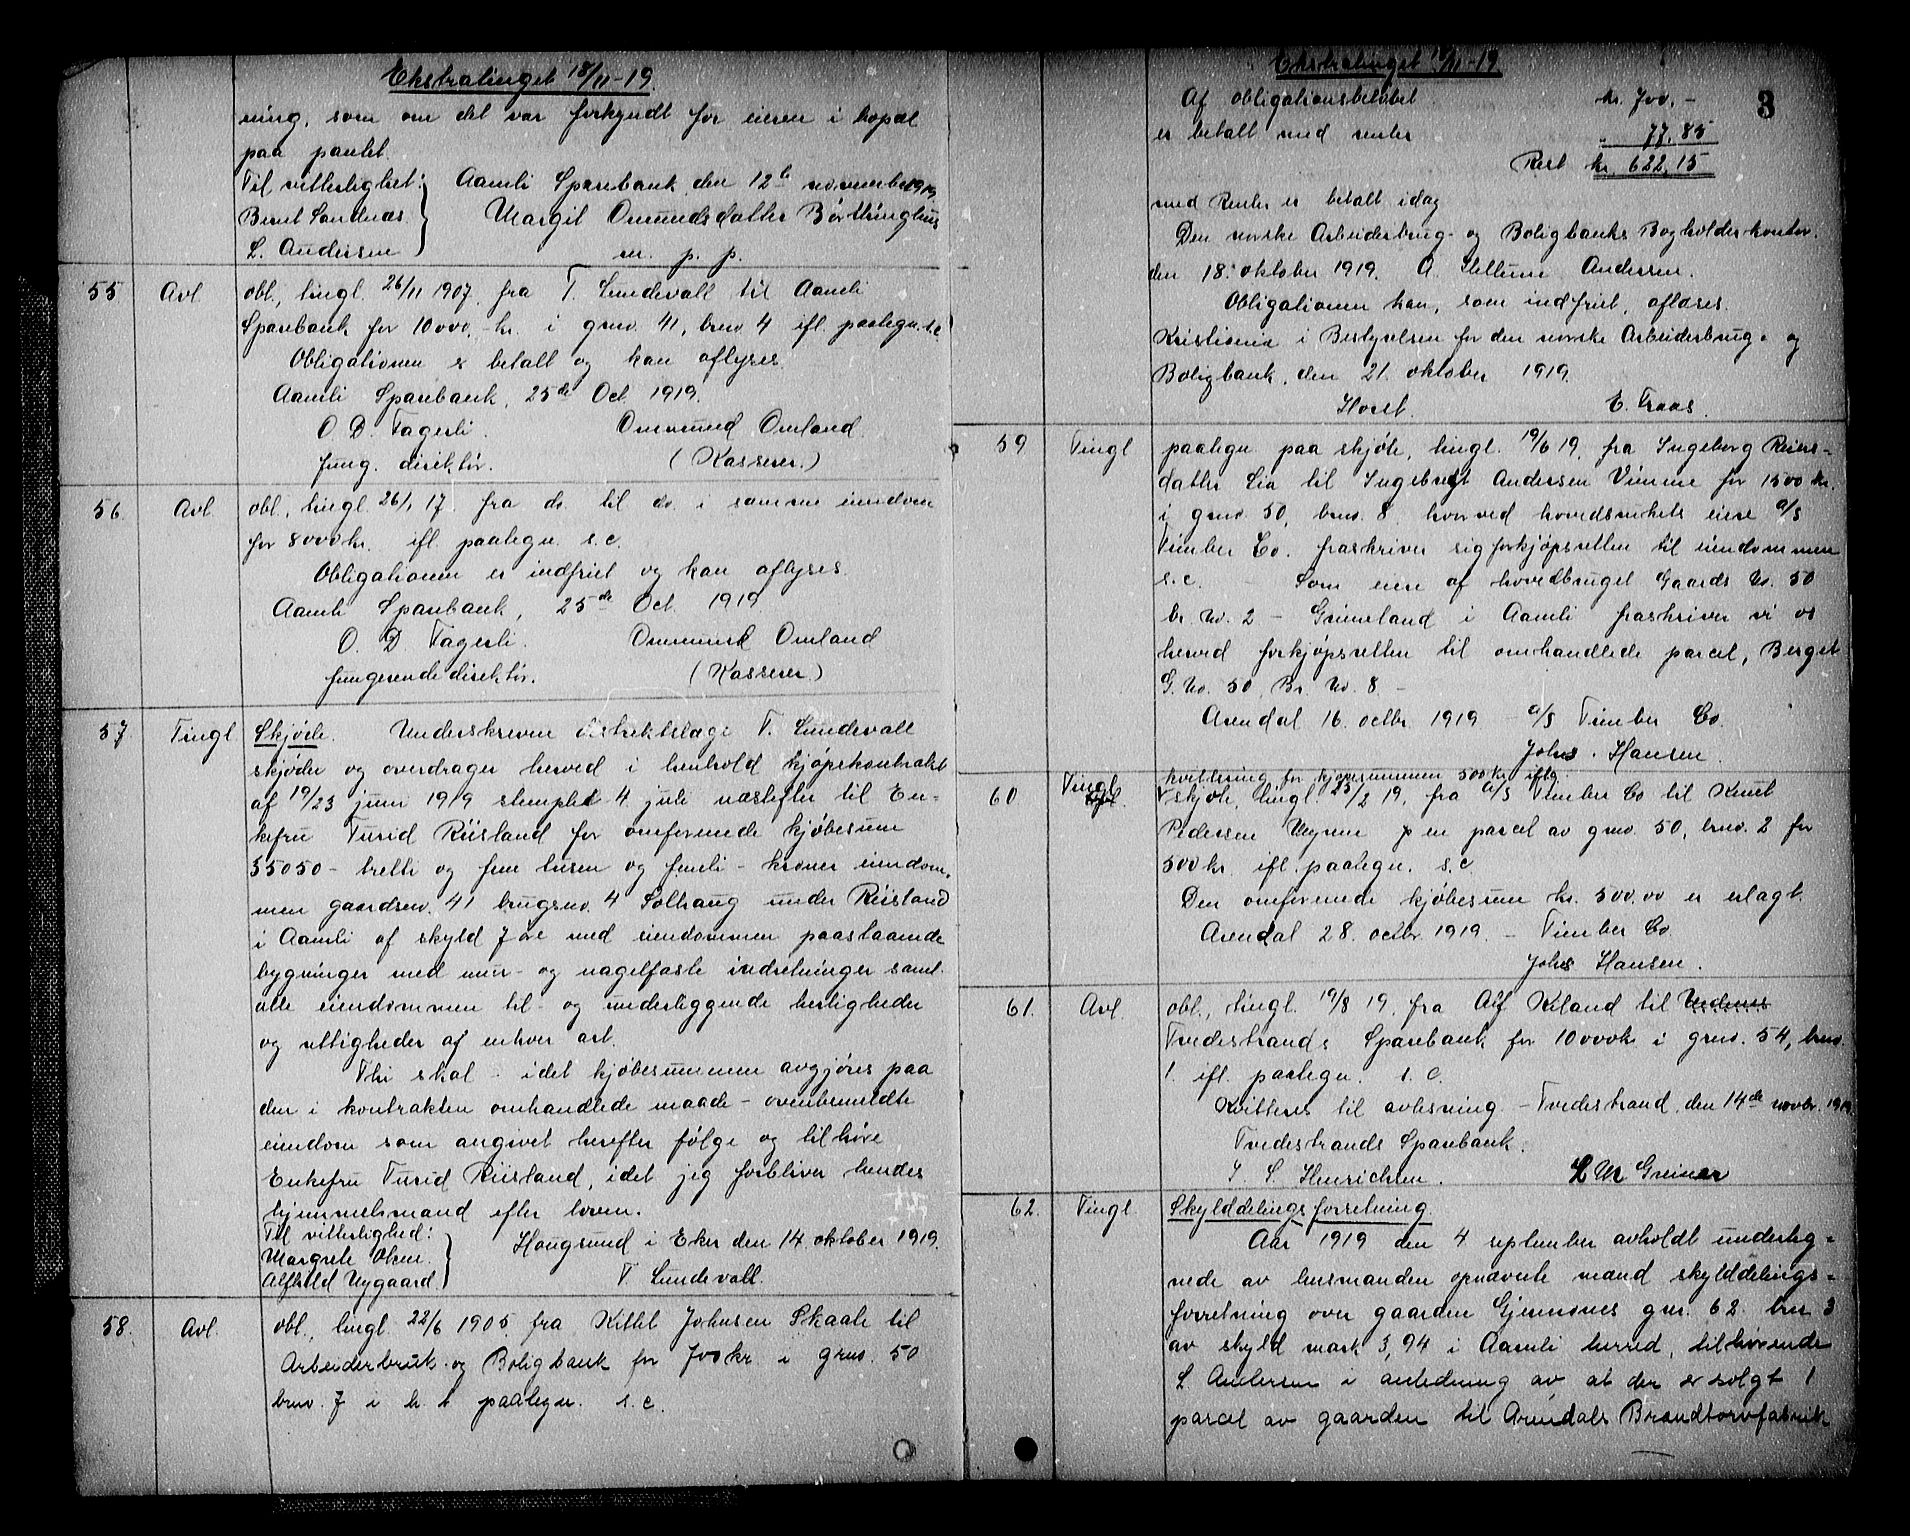 Ekstratinget 18/11-19.
ning, som om det var forkyndt for eieren i bopæl
paa pantet.
Til vitterlighet: Aamli Sparebank den 12te november 1919.
Bernt Sandnæs. Margit Omundsdatter Børtlinghus
L. Andersen m. p. p.
55 Avl. obl., tingl. 26/11 1907, fra T. Lundevall til Aamli
Sparebank for 10000,- kr. i grno. 41, brno. 4 ifl. paategn. s.c.
Obligationen er betalt og kan aflyses.
Aamli Sparebank, 25de Oct. 1919.
O. D. Fagerli. Ommund Omland.
fung. direktør. (Kasserer.)
56. Avl. obl., tingl. 26/1 17 fra do. til do. i samme eiendom
for 8000 kr. ifl. paategn. s.c.
Obligationen er indfriet og kan aflyses.
Aamli Sparebank, 25de Oct. 1919.
O. D. Fagerli. Ommund Omland
fungerende direktør. (Kasserer.)
57. Tingl. Skjøde. Underskreven distriktslæge T. Lundevall
skjøder og overdrager herved i henhold kjøpekontrakt
af 19/23 juni 1919 stemplet 4 juli næstefter til En-
kefru Turid Riisland for omforenede kjøbesum
35050 - tretti og fem tusen og femti - kroner eiendom-
men gaardsno. 41 brugsno. 4 Solhaug under Riisland
i Aamli af skyld 7 øre med eiendommen paastaaende
bygninger med mur- og nagelfaste indretninger samt
alle eiendommen til- og underliggende herligheder
og rettigheder af enhver art.
Thi skal - idet kjøbesummen avgjøres paa
den i kontrakten omhandlede maade - ovenbemeldte
eiendom som angivet herefter følge og tilhøre
Enkefru Turid Riisland, idet jeg forbliver hendes
hjemmelsmand efter loven.
Til vitterlighed: Hougsund i Eker den 14. oktober 1919.
Margrete Olsen. T. Lundevall.
Alfhild Nygaard.
58. Avl. obl., tingl. 22/6 1905, fra Kittel Johnsen Skaale til
Arbeiderbruk- og Boligbank for 700 kr. i grno. 50
brno. 7 i h. t. paategn. s.c.
Ekstratinget 18/11-19
3
Af obligationsbeløbet kr. 700.-
er betalt med renter " 77.85
Rest kr. 622,15
med Renter er betalt idag
Den norske Arbeiderbrug- og Boligbanks Bogholderkontor.
den 18. oktober 1919. A. Andersen.
Obligationen kan, som indfriet, aflæses.
Kristiania i Bestyrelsen for den norske Arbeiderbrug- og
Boligbank, den 21. oktober 1919.
Horst. E. Traas.
59 Tingl paategn. paa skjøte, tingl. 19/6 19, fra Ingeborg Reiers-
datter Lia til Ingebregt Andersen Vimme for 1500 kr.
i grno. 50, brno. 8 hvorved hovedbrukets eiere A/S
Timber Co. fraskriver sig forkjøpsretten til eiendommen
s.c. - Som eiere af hovedbruget Gaards No. 50
br. No. 2 - Grimeland i Aamli fraskriver vi os
herved forkjøpsretten til omhandlede parcel, Berget
G. No. 50, Br. No. 8 -
Arendal 16. octbr. 1919 - A/S Timber Co.
Johs. Hansen.
kvittering for kjøpesummen 500 kr. iflg.
60 Tingl. skjøte, tingl. 25/2 19, fra A/S Timber Co til Knut
Pedersen Vegrim p en parcel av grno. 50, brno. 2 for
500 kr. ifl. paategn. s.c
Den omforenede kjøbesum kr. 500.00 er erlagt.
Arendal 28. octbr. 1919. - Timber Co.
Johs Hansen.
61. Avl. obl., tingl. 19/8 19, fra Alf Kiland til
Tvedestrands Sparebank for 10000 kr i grno. 54, brno.
1. ifl. paategn. s. c.
Kvitteres til avlæsning. - Tvedestrand, den 14de novbr. 1919
Tvedestrands Sparebank.
Henrichsen. Greiner
62. Tingl. Skylddelingsforretning.
Aar 1919 den 4 september avholdt underteg-
nede av lensmanden opnævnte mænd skylddelings-
forretning over gaarden Gjermones gnr. 62. brn 3
av skyld mark 3,94 i Aamli herred, tilhørende
L Andersen i anledning av at der er solgt 1
parcel av gaarden til Arendals Brændtorvfabrik